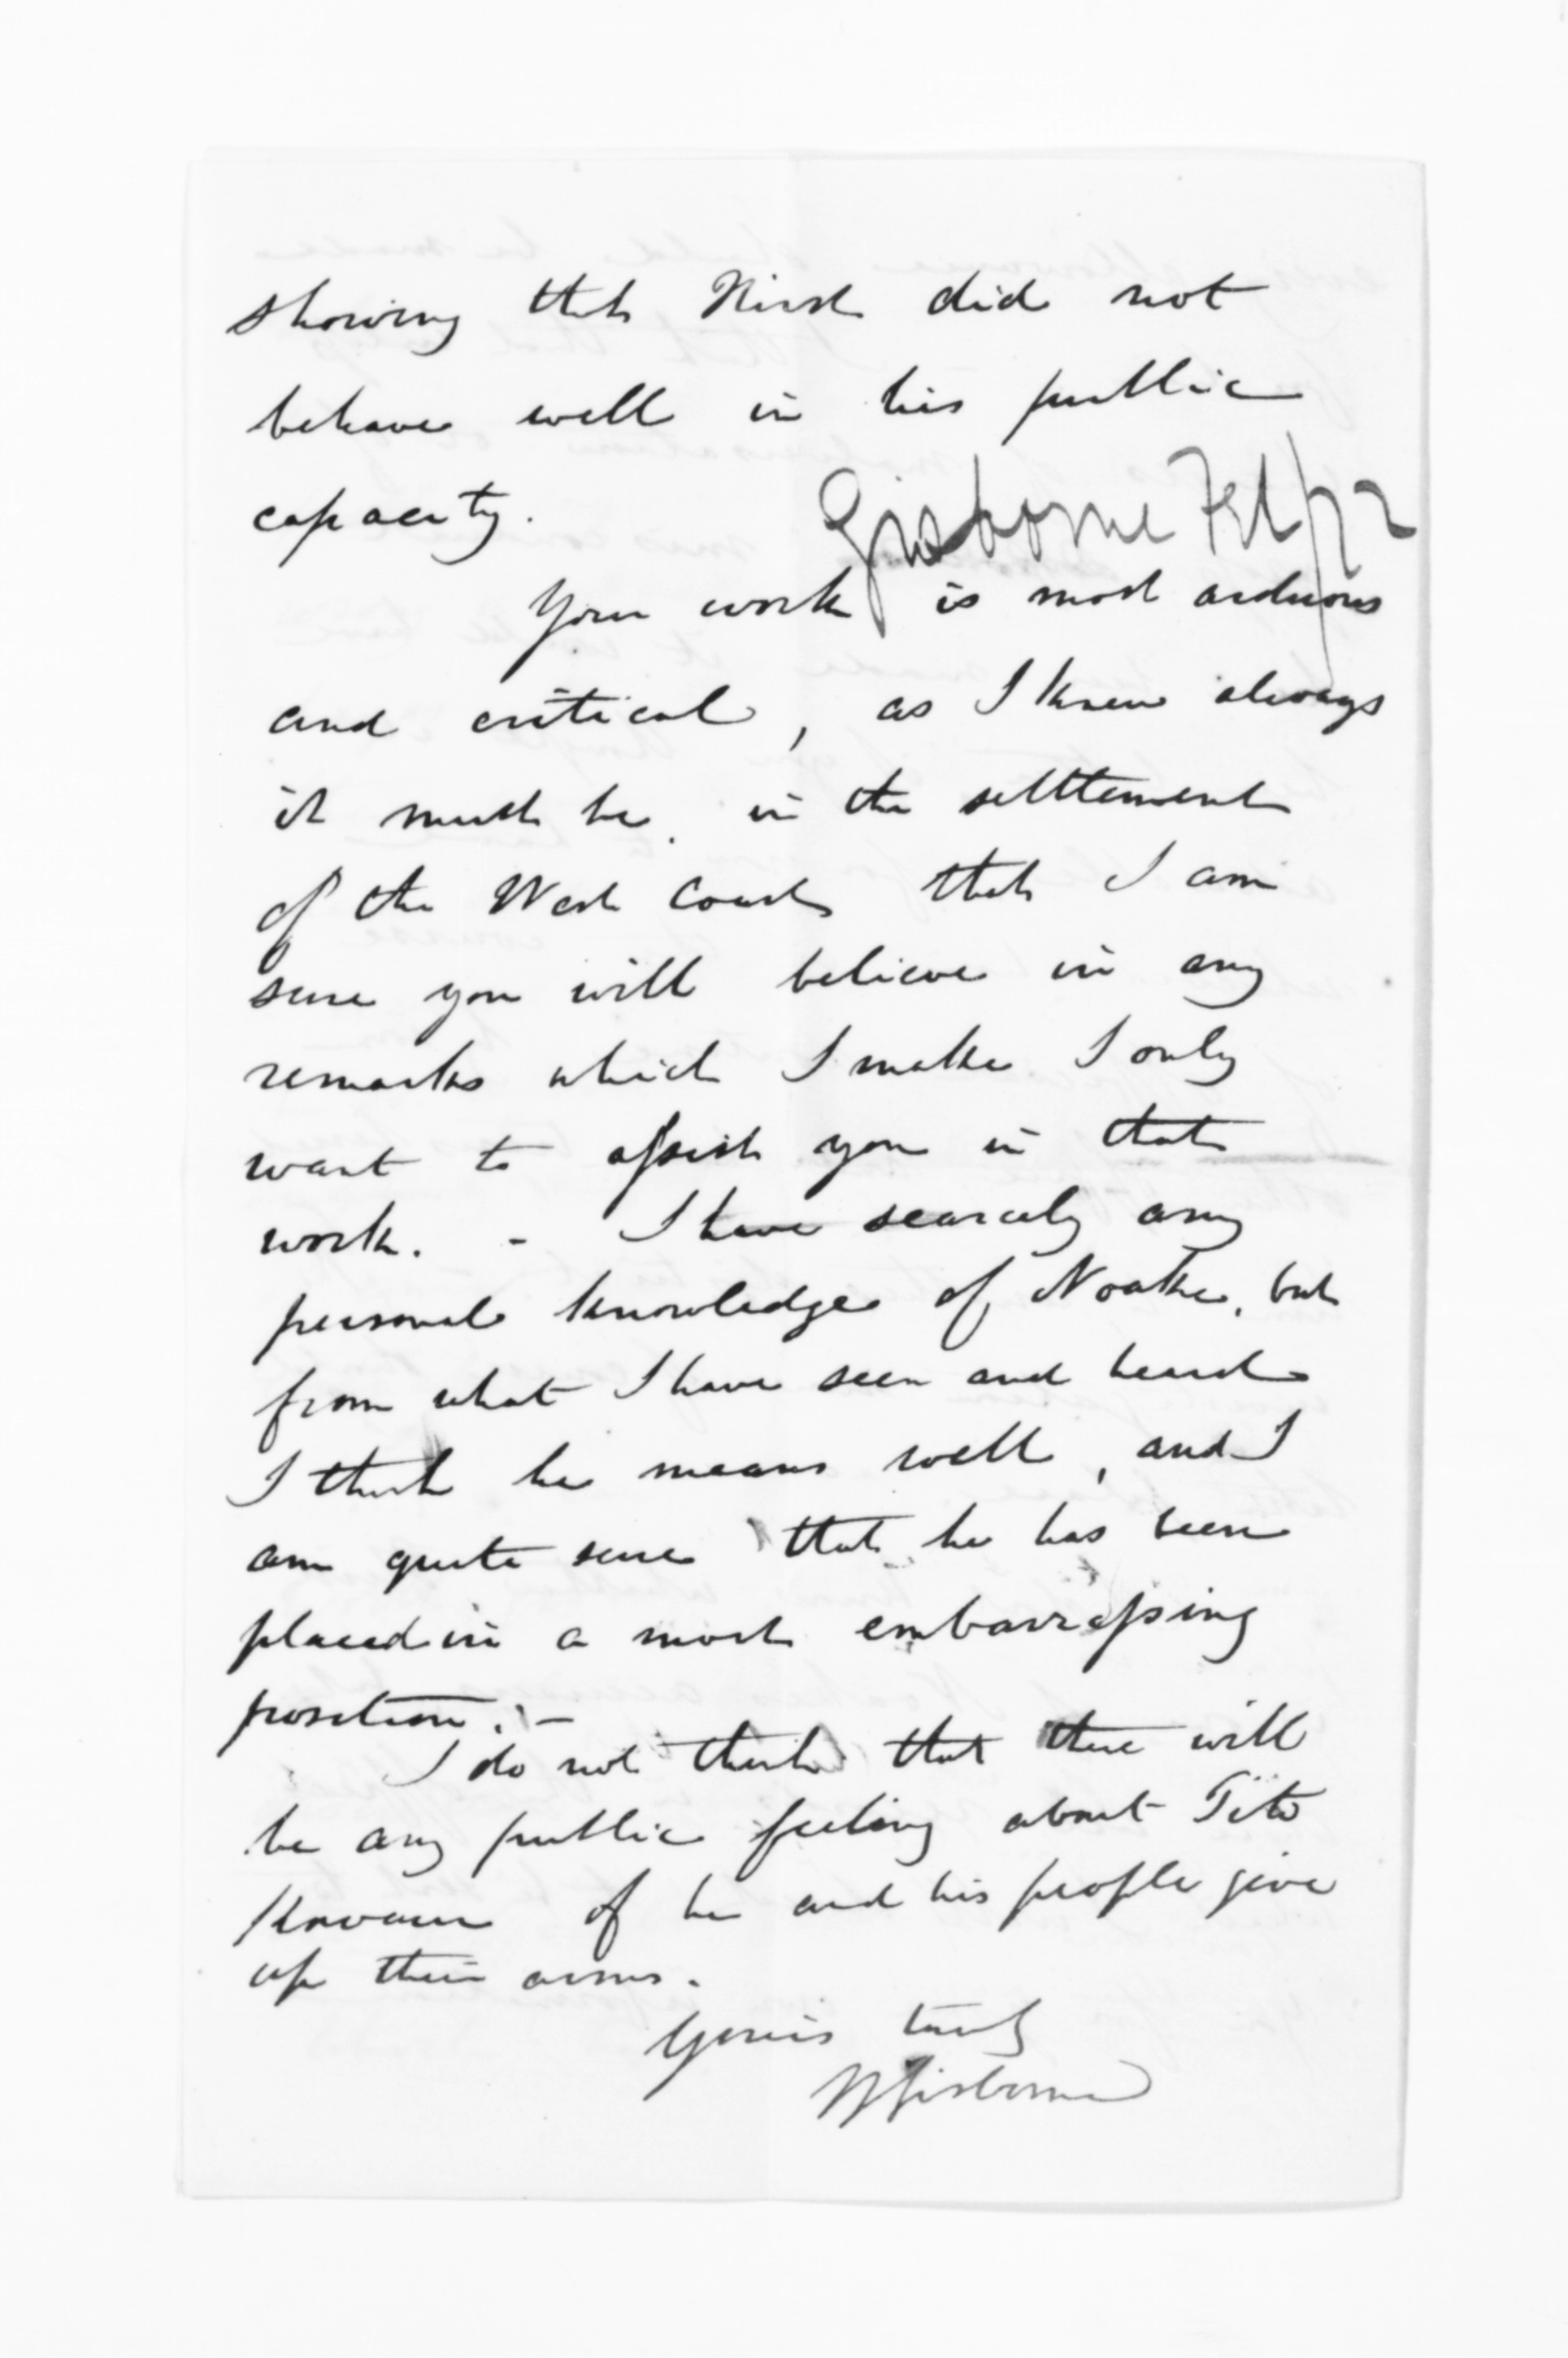 showing that Hirst did not
behave well in his public
capacity.
Gisborne Feb/72
Your work is most arduous
and critical, as I knew always
it must be, in the settlement
of the West Coast that I am
sure you will believe in any
remarks which I make I only
want to assist you in that
work. - I have scarcely any
personal knowledge of Noake, but
from what I have seen and heard
I think he means well, and I
am quite sure that he has been
placed in a most embarrassing
position. -
I do not think that there will
be any public feeling about Tito
Kowaru if he and his people give
up their arms.
Yours truly
W Gisborne